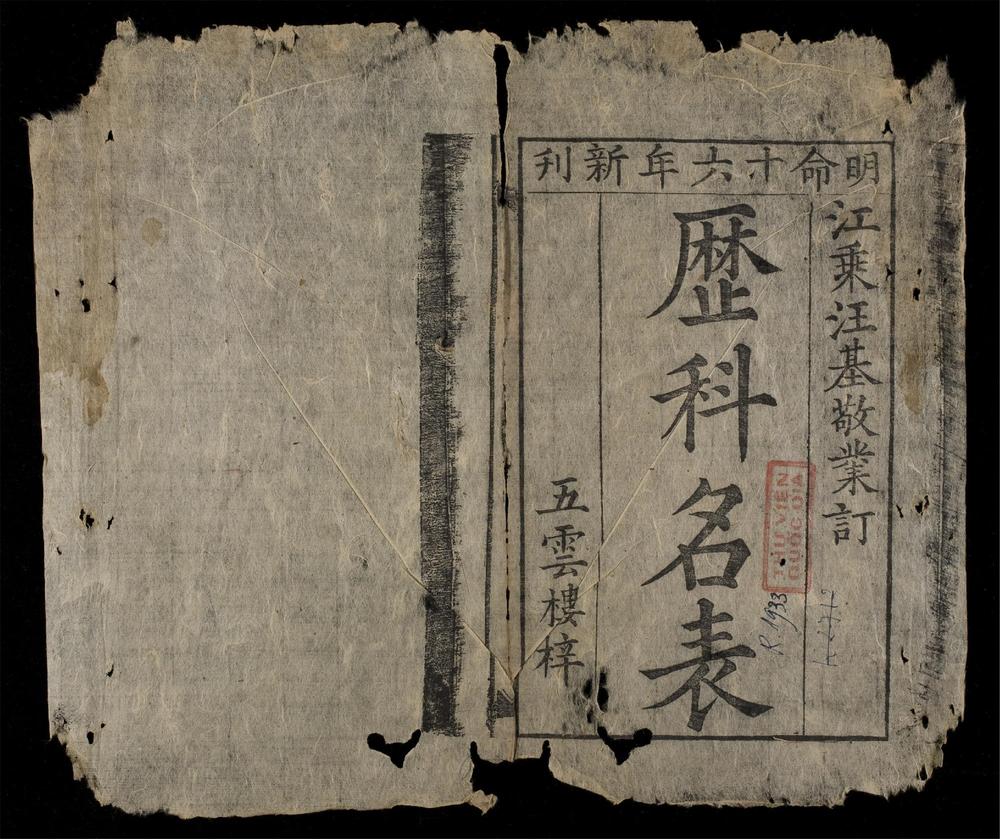 明命十六年新刊
江乗汪基敬業訂
歴科名表
五雲樓梓
THU VIEN
QUOC GIA
R.1933